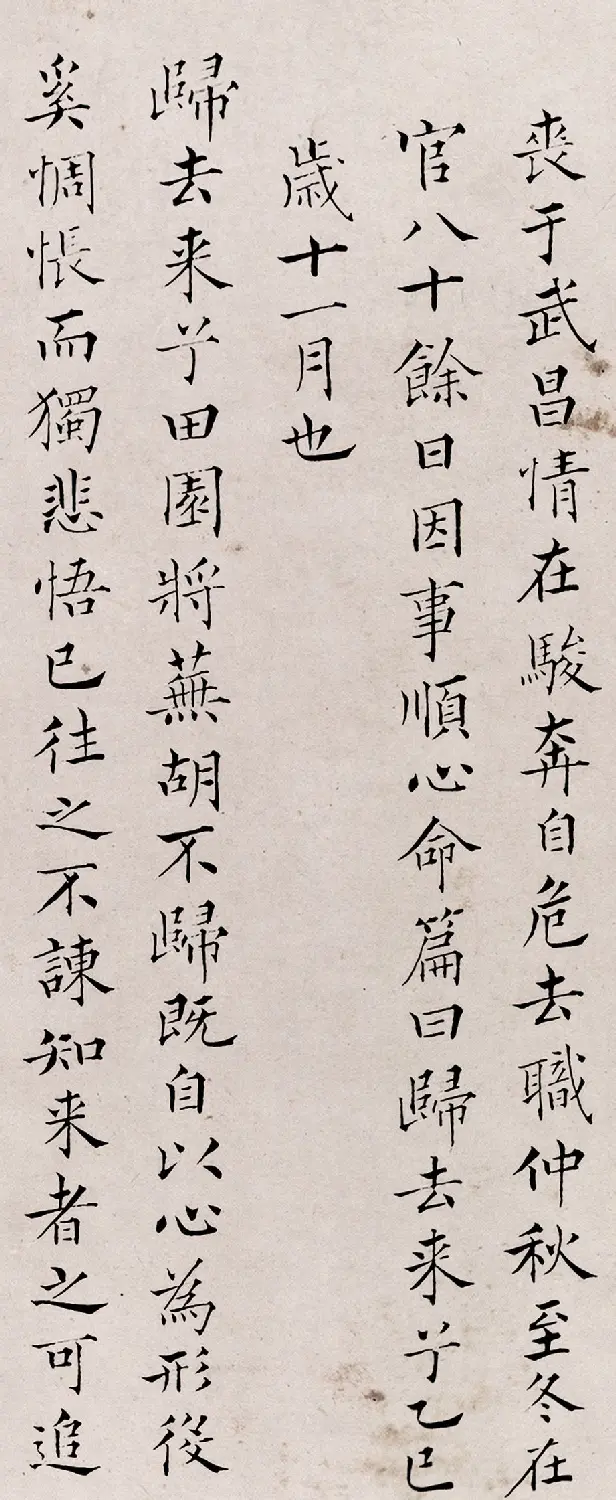 喪于武昌情在駿奔自危去職仲秋至冬在
官八十餘日因事順心命篇曰歸去来兮乙巳
歳十一月也
歸去来兮田園將蕪胡不歸既自以心為形役
奚惆悵而獨悲悟已往之不諫知来者之可追